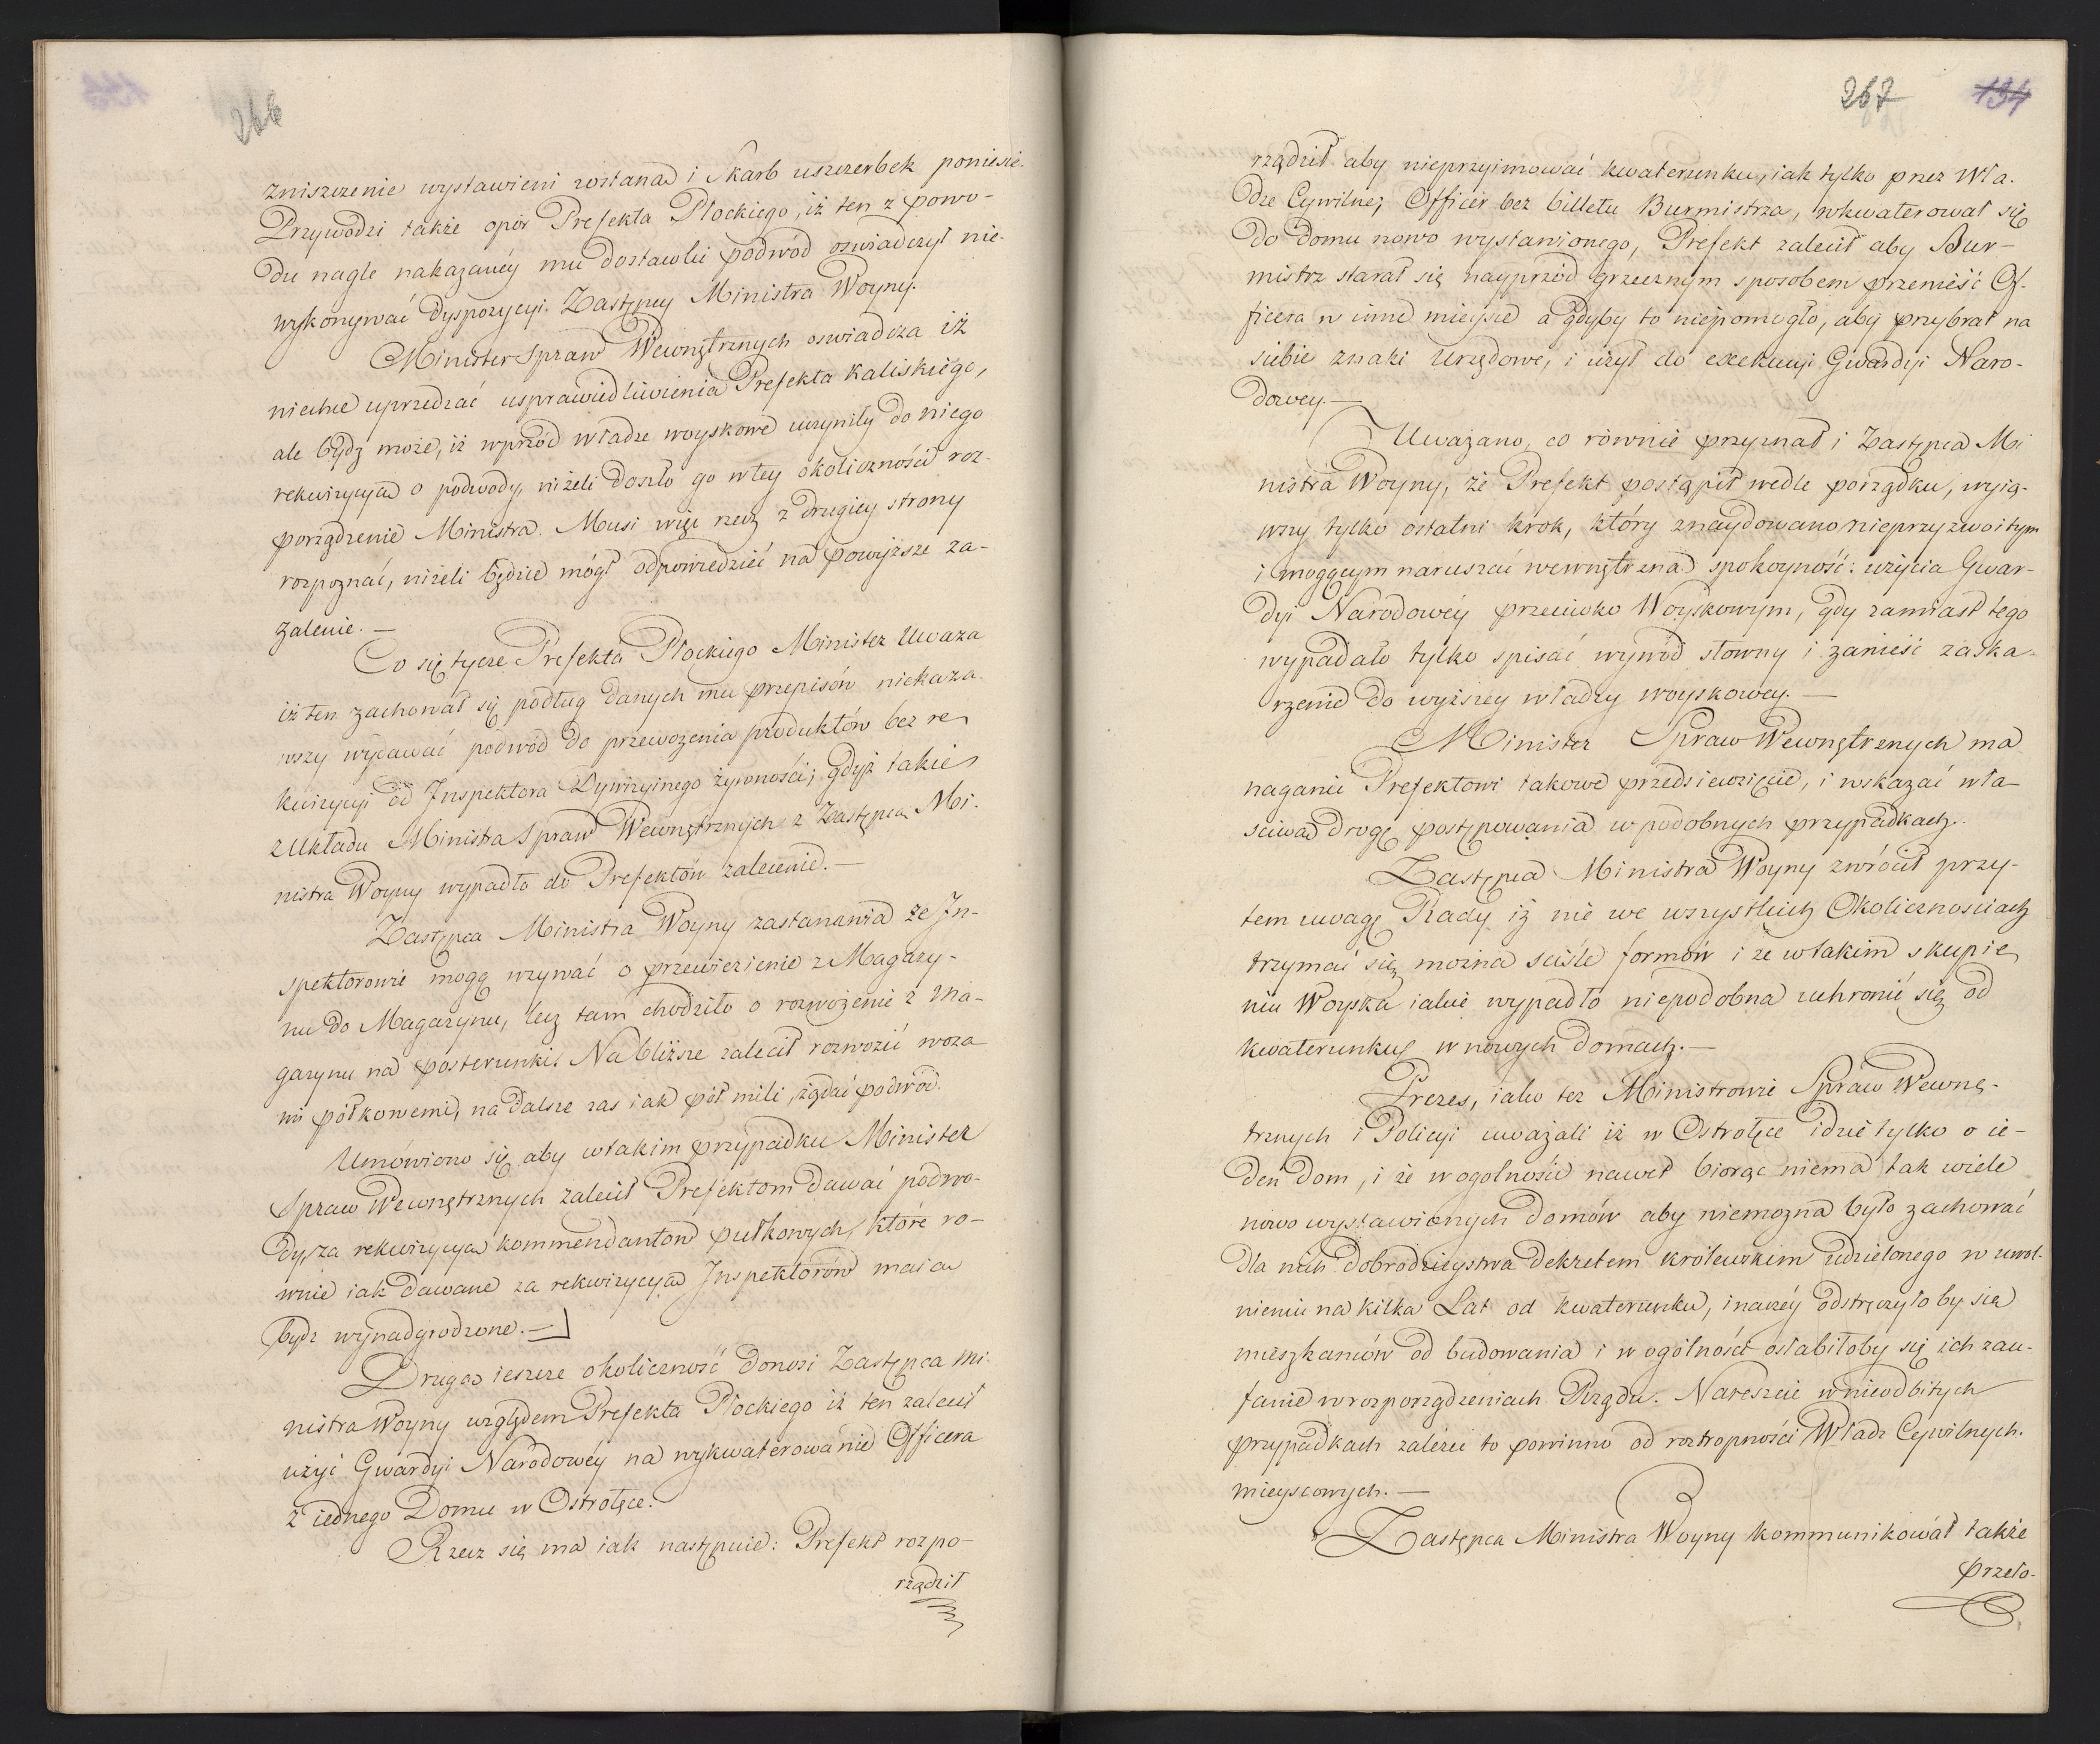 266
zniszczenie wystawieni zostaną i Skarb uszczerbek poniesie.
Przywodzi także opór Prefekta Płockiego, iż ten z powo-
du nagle nakazanéy mu dostawki podwód oswiadczył nie-
wykonywać dyspozycyi Zastępcy Ministra Woyny.
Minister Spraw Wewnętrznych oswiadcza iż
niechce uprzedzać usprawiedliwienia Prefekta Kaliskiego,
ale bydź może, iż wprzód władze woyskowe uczyniły do niego
rekwizycyą o podwody, niżeli doszło go w tey okoliczności roz-
porządzenie Ministra. Musi więc rzecz z drugiey strony
rozpoznać, niżeli będzie mógł odpowiedzieć na powyższe za-
żalenie. —
Co się tycze Prefekta Płockiego Minister Uważa
iż ten zachował się podług danych mu przepisów niekaza-
wszy wydawać podwód do przewożenia produktów bez re-
kwizycyi od Inspektora Dywizyinego żywności; gdyż takie
z Układu Ministra Spraw Wewnętrznych z Zastępcą Mi-
nistra Woyny wypadło do Prefektów zalecenie. —
Zastępca Ministra Woyny zastanawia że In-
spektorowie mogą wzywać o przewiezienie z Magazy-
nu do Magazynu, lecz tam chodziło o rozwożenie z Ma-
gazynu na posterunki. Na bliższe zalecił rozwozić woza-
mi półkowemi, na dalsze zas iak pół mili, żądać podwód.
Umówiono się aby w takim przypadku Minister
Spraw Wewnętrznych zalecił Prefektom dawać podwo-
dy, za rekwizycyą kommendantów pułkowych, które ro-
wnie iak dawane za rekwizycyą Inspektorów maią
bydź wynadgrodzone. —
Drugą ieszcze okoliczność donosi Zastępca Mi-
nistra Woyny względem Prefekta Płockiego iż ten zalecił
użyć Gwardyi Narodowéy na wykwaterowanie Officera
z iednego Domu w Ostrołęce.
Rzecz się ma iak następuie: Prefekt rozpo-
rządził
267 134
rządził aby nieprzyimować kwaterunku, iak tylko przez Wła-
dze Cywilne; Officer bez billetu Burmistrza, wkwaterował się
do domu nowo wystawionego, Prefekt zalecił aby Bur-
mistrz starał się nayprzód grzecznym sposobem przenieść Of-
ficera w inne mieysce a gdyby to niepomogło, aby przybrał na
siebie znaki Urzędowe, i użył do exekucyi Gwardyi Naro-
dowey. —
Uważano, co równie przyznał i Zastępca Mi
nistra Woyny, że Prefekt postąpił wedle porządku, wyią-
wszy tylko ostatni krok, który znaydowano nieprzyzwoitym
i mogącym naruszać wewnętrzną spokoyność: użycia Gwar-
dyi Narodowéy przeciwko Woyskowym, gdy zamiast tego
wypadało tylko spisać wywód słowny i zanieść zaska-
rzenie do wyższey władzy woyskowey. —
Minister Spraw Wewnętrznych ma
naganić Prefektowi takowe przedsiewzięcie, i wskazać wła-
sciwą drogę postępowania w podobnych przypadkach.
Zastępca Ministra Woyny zwrócił przy-
tem uwagę Rady iż nie we wszystkich Okolicznosciach
trzymać się można ściśle formów i że w takim skupie-
niu Woyska iakie wypadło niepodobna uchronić się od
kwaterunku w nowych domach. —
Prezes, iako też Ministrowie Spraw Wewnę-
trznych i Policyi uważali iż w Ostrołęce idzie tylko o ie-
den dom, i że w ogolności nawet biorąc niema tak wiele
nowo wystawionych domów aby niemożna było zachować
dla nich dobrodzieystwa dekretem królewskim udzielonego w uwol-
nieniu na kilka Lat od kwaterunku, inaczéy odstręczyłoby się
mieszkańców od budowania i w ogólności osłabiłoby się ich zau-
fanie w rozporządzeniach Rządu. Nareszcie w nieodbitych
przypadkach zależeć to powinno od roztropności Władz Cywilnych
mieyscowych. —
Zastępca Ministra Woyny kommunikował także
przeło-